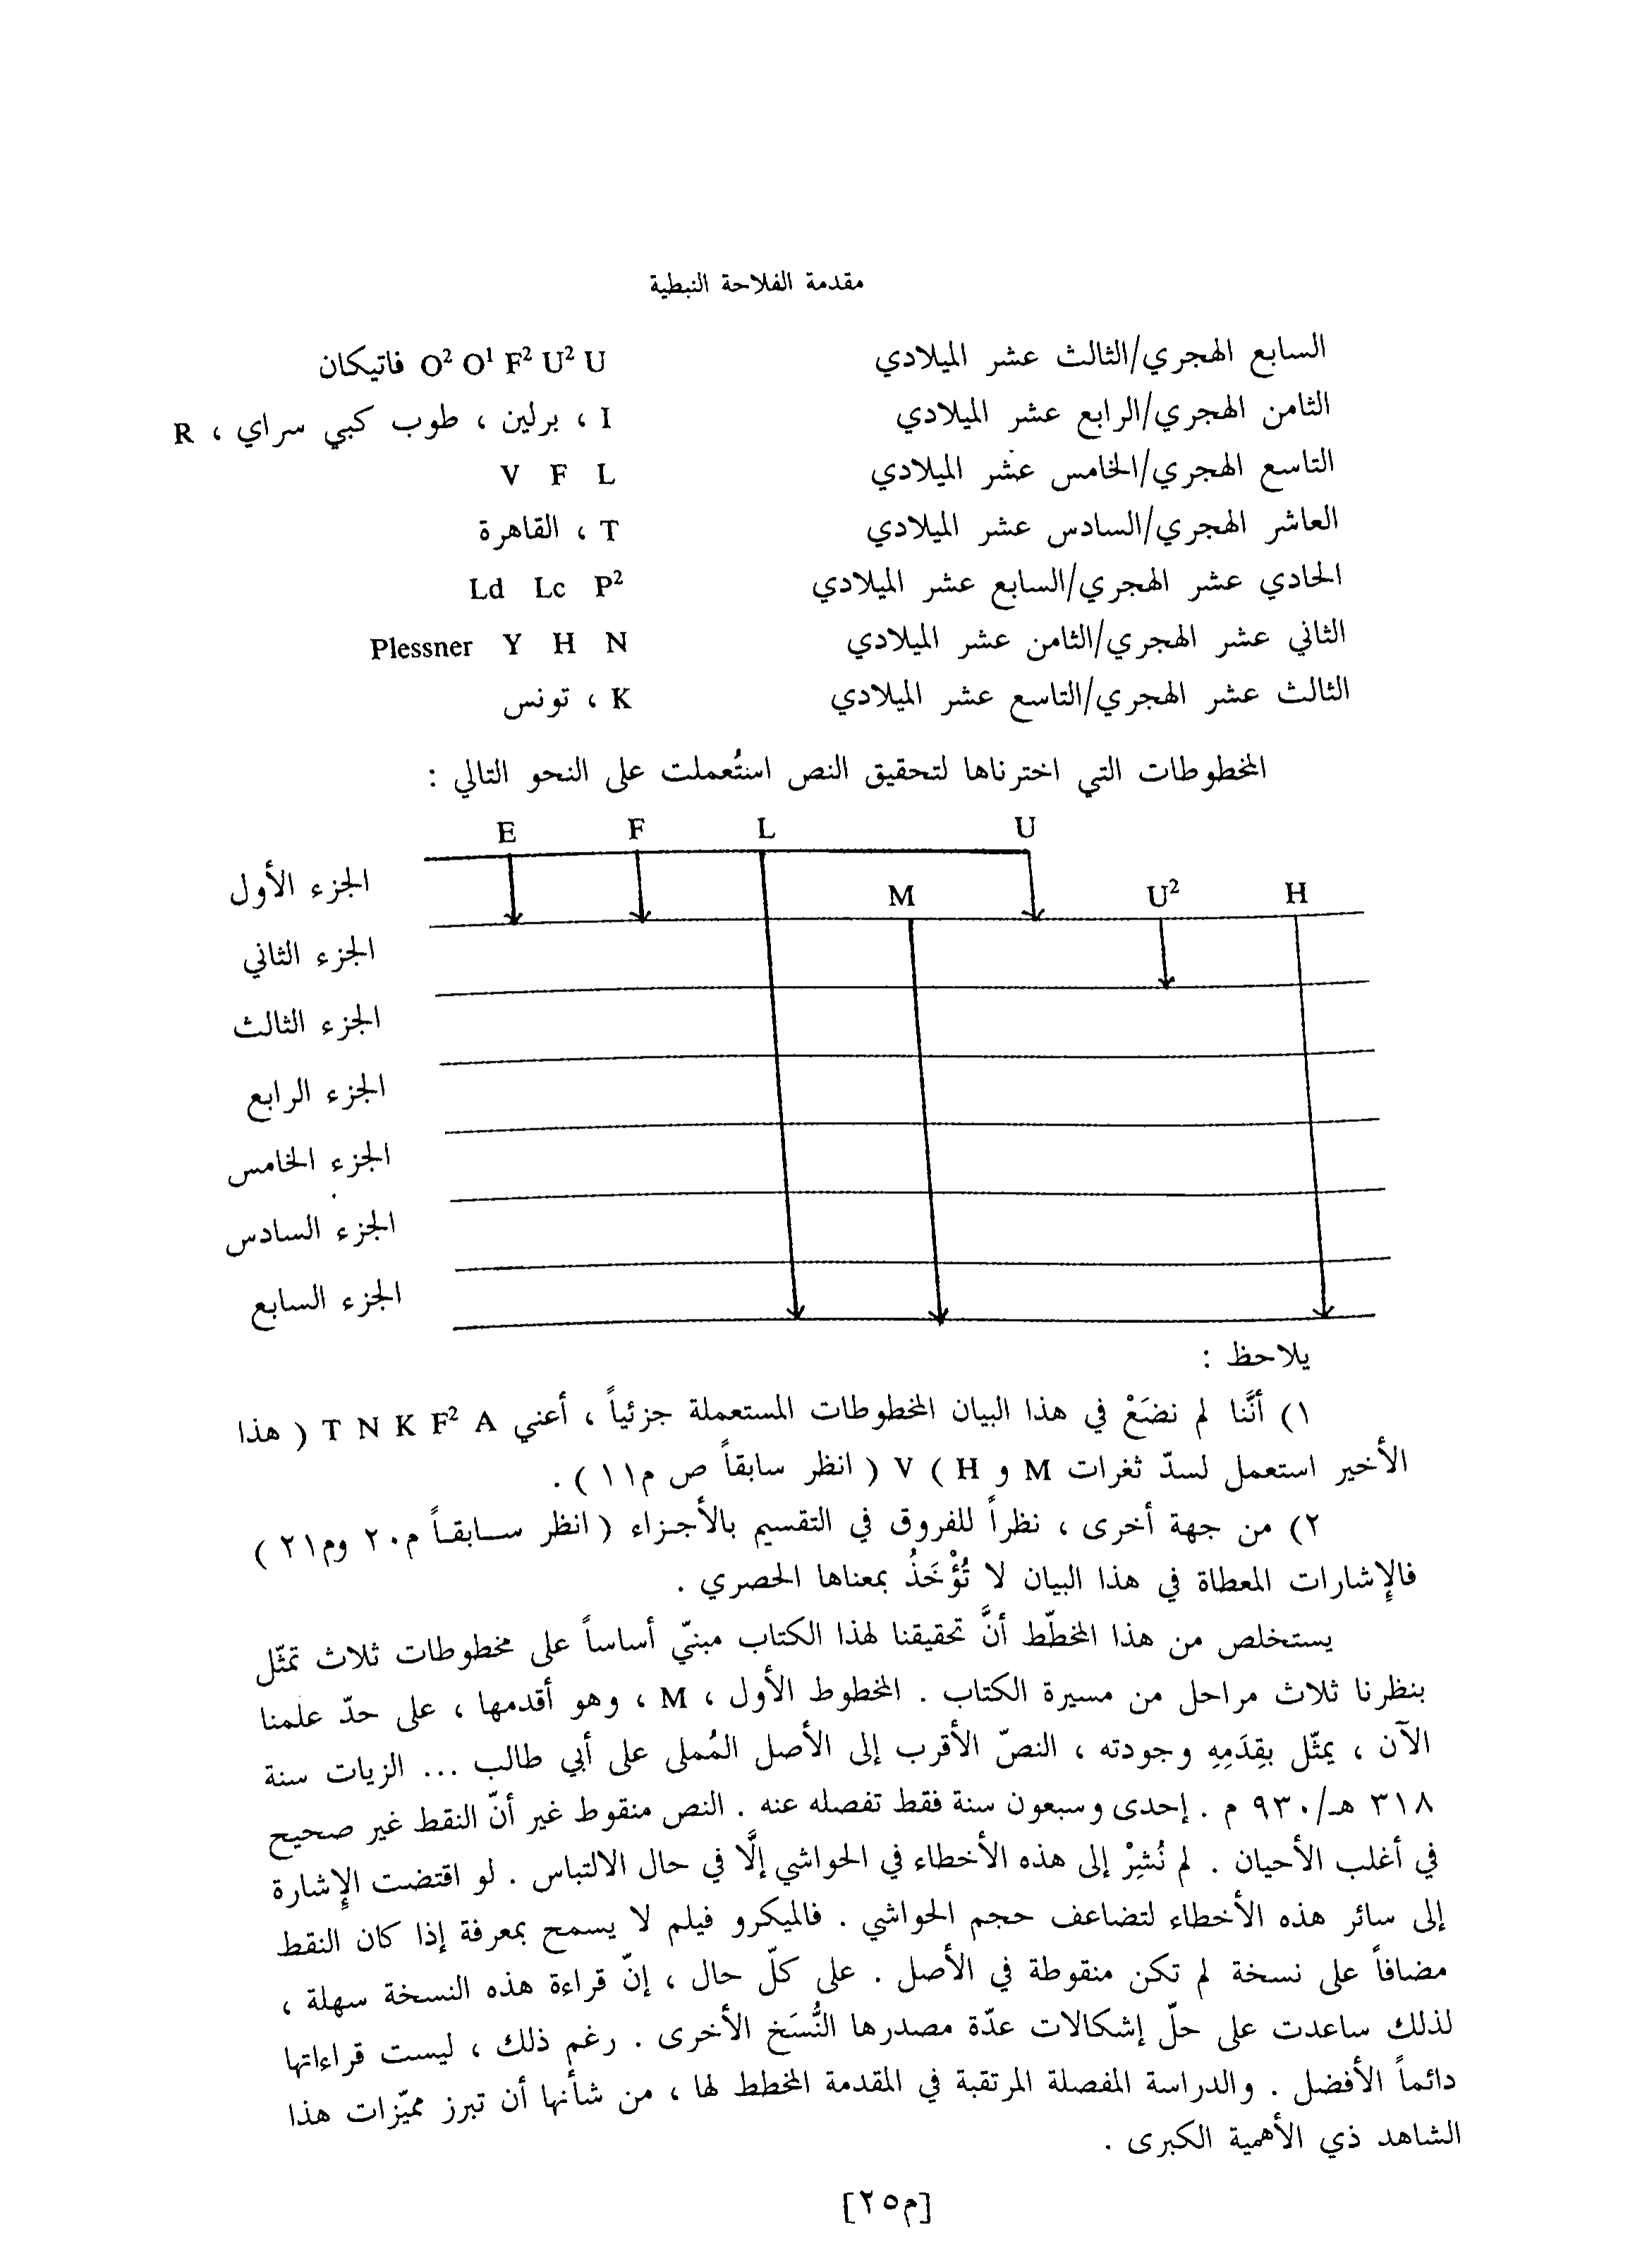 مقدمة الفلاحة النبطية
السابع الهجري/الثالث عشر الميلادي O² O¹ F² U² U فاتيكان
الثامن الهجري/الرابع عشر الميلادي I ، برلين ، طوب كبي سراي ، R
التاسع الهجري/الخامس عشر الميلادي V F L
العاشر الهجري/السادس عشر الميلادي T ، القاهرة
الحادي عشر الهجري/السابع عشر الميلادي Ld Lc P²
الثاني عشر الهجري/الثامن عشر الميلادي Plessner Y H N
الثالث عشر الهجري/التاسع عشر الميلادي K ، تونس
المخطوطات التي اخترناها لتحقيق النص استُعملت على النحو التالي :
E F L U
M U² H
الجزء الأول
الجزء الثاني
الجزء الثالث
الجزء الرابع
الجزء الخامس
الجزء السادس
الجزء السابع
يلاحظ :
١) أنَّنا لم نضَعْ في هذا البيان المخطوطات المستعملة جزئياً ، أعني T N K F² A ( هذا
الأخير استعمل لسدّ ثغرات M و H ) V ( انظر سابقاً ص م١١ ) .
٢) من جهة أخرى ، نظراً للفروق في التقسيم بالأجزاء ( انظر سابقاً م٢٠ وم٢١ )
فالإشارات المعطاة في هذا البيان لا تُؤْخَذُ بمعناها الحصري .
يستخلص من هذا المخطّط أنَّ تحقيقنا لهذا الكتاب مبنيّ أساساً على مخطوطات ثلاث تمثّل
بنظرنا ثلاث مراحل من مسيرة الكتاب . المخطوط الأول ، M ، وهو أقدمها ، على حدّ علمنا
الآن ، يمثّل بقِدَمِهِ وجودته ، النصّ الأقرب إلى الأصل المُملى على أبي طالب ... الزيات سنة
٣١٨ هـ/٩٣٠ م . إحدى وسبعون سنة فقط تفصله عنه . النص منقوط غير أنّ النقط غير صحيح
في أغلب الأحيان . لم نُشِرْ إلى هذه الأخطاء في الحواشي إلَّا في حال الالتباس . لو اقتضت الإشارة
إلى سائر هذه الأخطاء لتضاعف حجم الحواشي . فالميكرو فيلم لا يسمح بمعرفة إذا كان النقط
مضافاً على نسخة لم تكن منقوطة في الأصل . على كلّ حال ، إنّ قراءة هذه النسخة سهلة ،
لذلك ساعدت على حلّ إشكالات عدّة مصدرها النُّسَخ الأخرى . رغم ذلك ، ليست قراءاتها
دائماً الأفضل . والدراسة المفصلة المرتقبة في المقدمة المخطط لها ، من شأنها أن تبرز مميّزات هذا
الشاهد ذي الأهمية الكبرى .
[م٢٥]